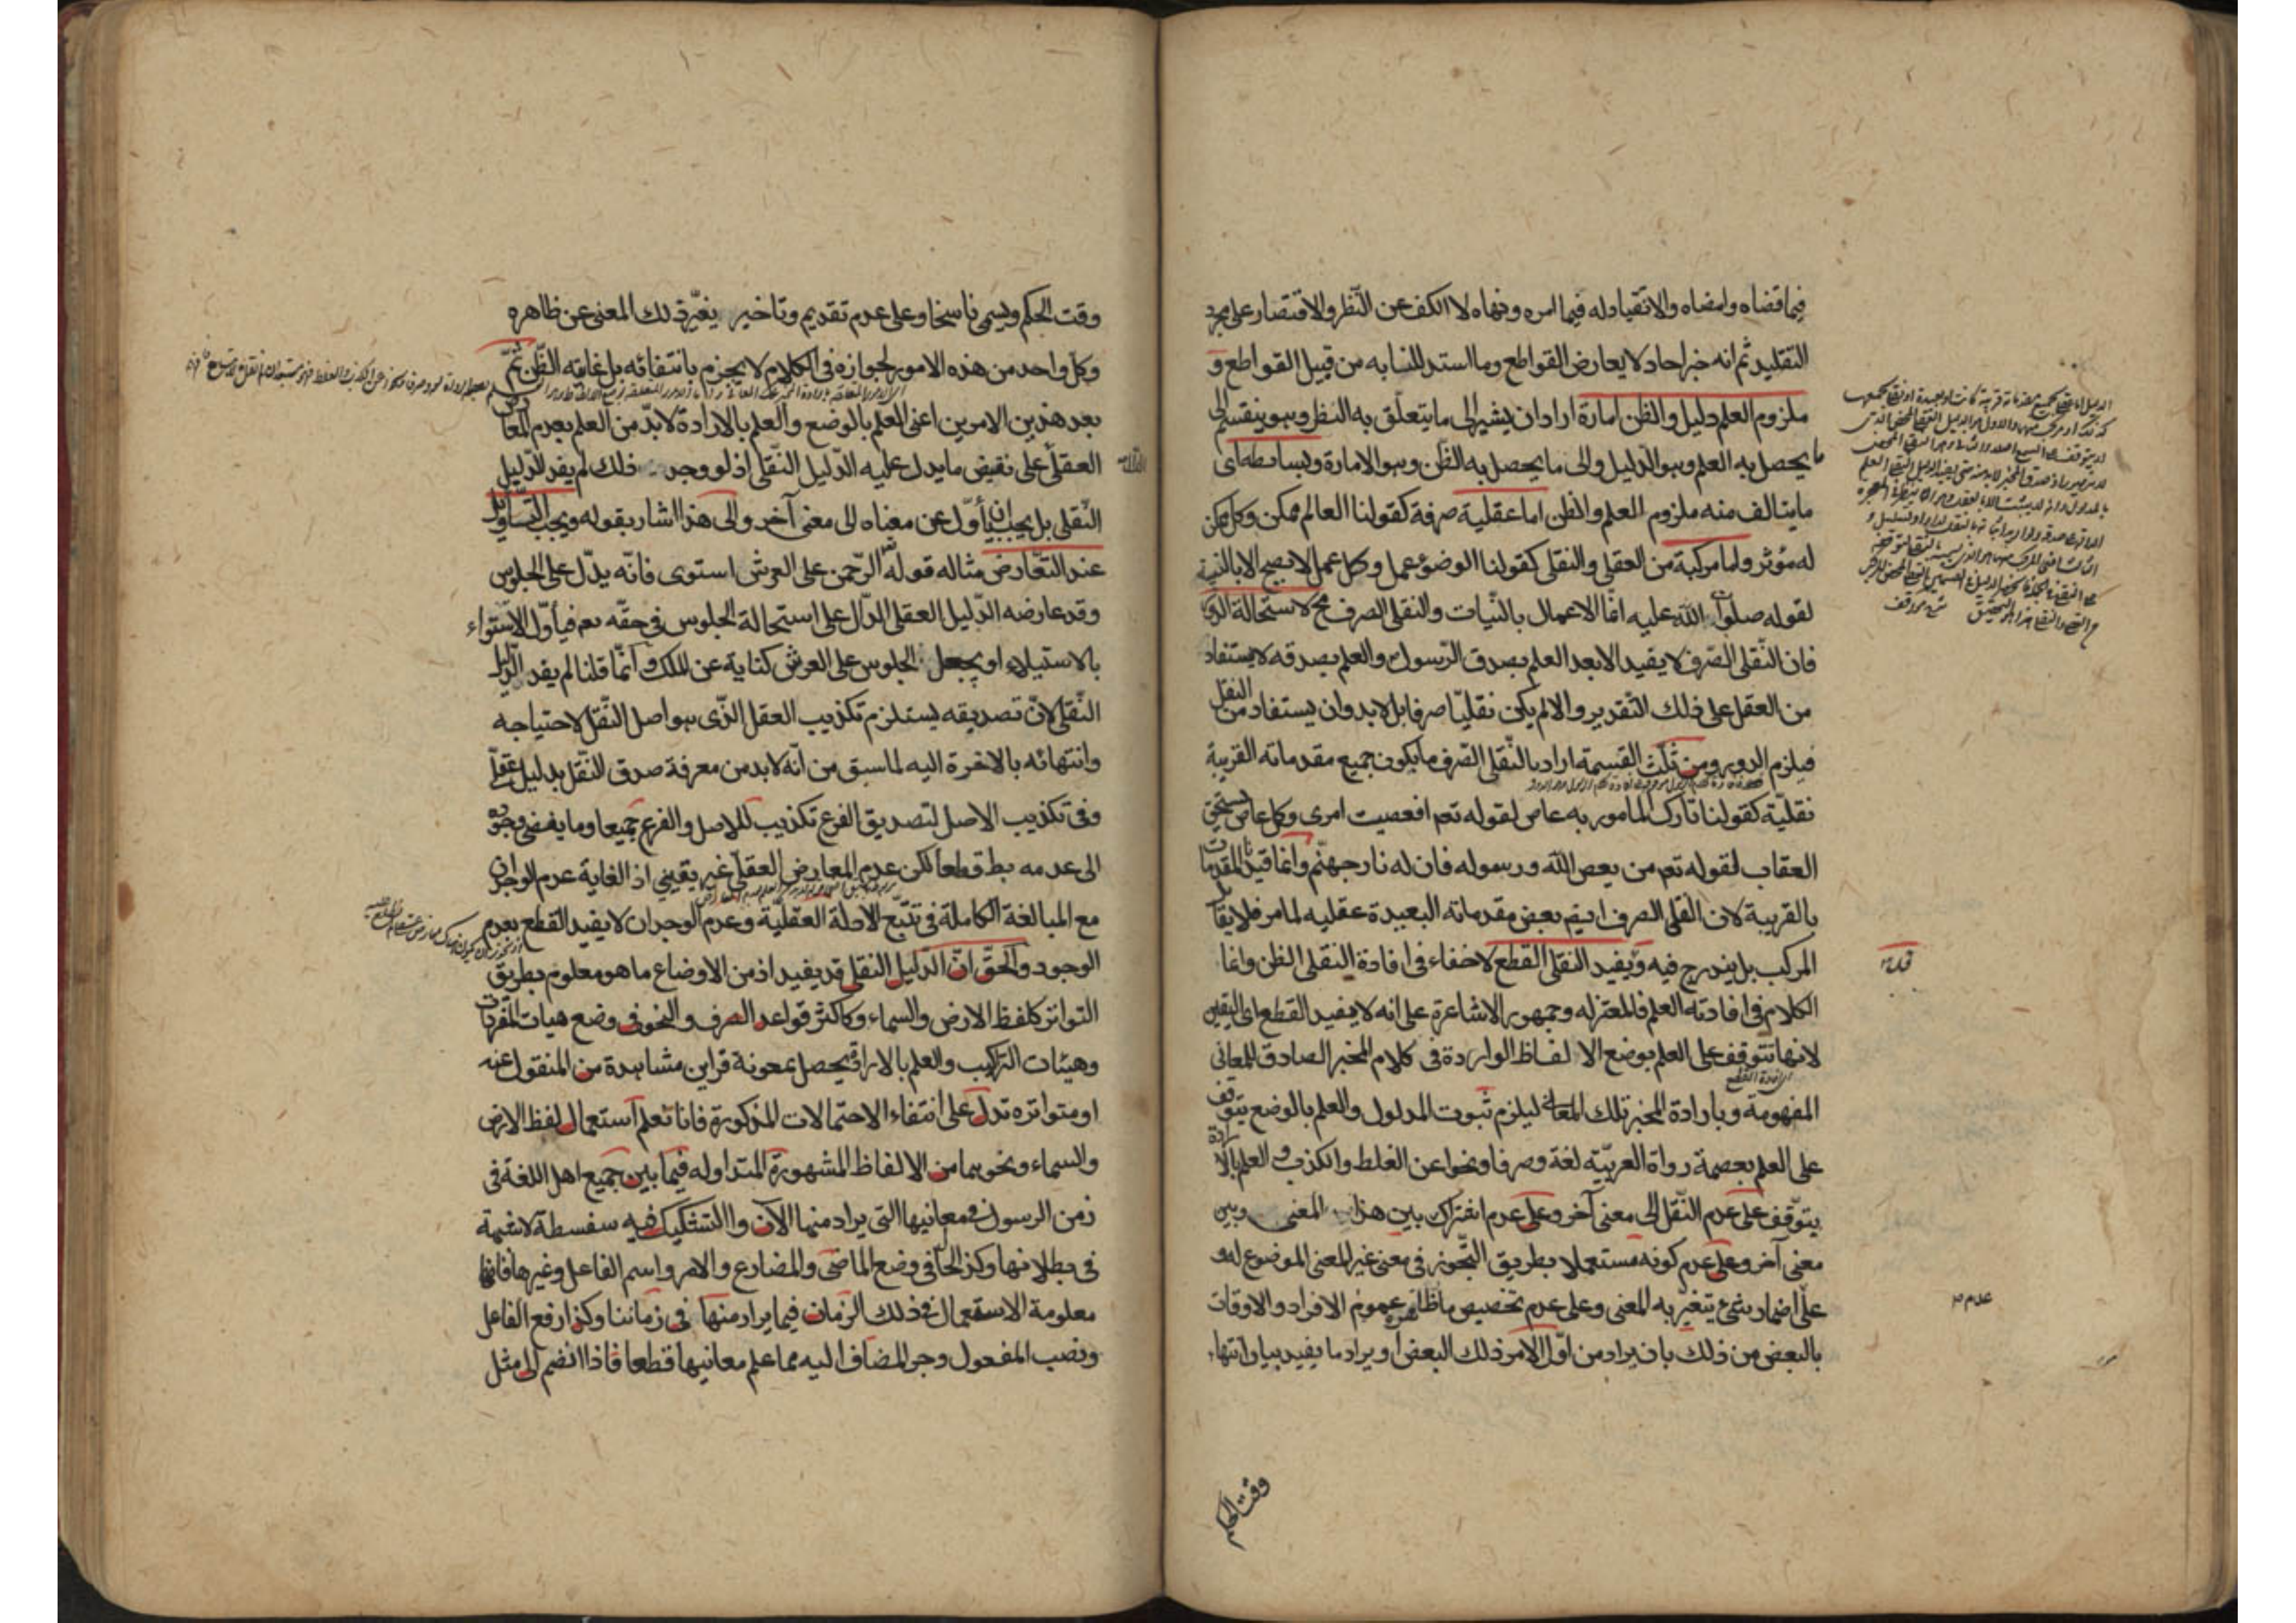 فيما قضاه وامضاه والانقياد له فيما امره ونهاه لا الكف عن النّظر والاقتصار على مجرد
التقليد ثم انه خبر احاد لا يعارض القواطع وما استدللنا به من قبيل القواطع و
ملزوم العلم دليل والظن امارة اراد ان يشير الى ما يتعلّق به النظر وهو ينقسم الى
ما يحصل به العلم وهو الدّليل والى ما يحصل به الظّن وهو الامارة وبسائطه اى
ما يتالف منه ملزوم العلم والظن اما عقلية صرفة كقولنا العالم ممكن وكل ممكن
له مؤثر واما مركبة من العقلى والنقلى كقولنا الوضوء عمل وكل عمل لا يصح الا بالنية
لقوله صلوات الله عليه انما الاعمال بالنّيات والنقلى الصرف مح لاستحالة الدور
فان النّقلى الصّرف لا يفيد الا بعد العلم بصدق الرّسول والعلم بصدقه لا يستفاد
من العقل على ذلك التّقدير والا لم يكن نقليّا صرفا بل لابد وان يستفاد من النقل
فيلزم الدور ومن ثلّث القسمة اراد بالنّقلى الصّرف ما يكون جميع مقدماته القريبة
نقليّة كقولنا تارك المامور به عاص لقوله تعم افعصيت امرى وكل عاص يستحق
العقاب لقوله تعم من يعص الله ورسوله فان له نار جهنّم وانما قيدنا المقدمات
بالقريبة لان النقلى الصرف ايضم بعض مقدماته البعيدة عقليه لما مر فلا يقابل
المركب بل يندرج فيه ويفيد النقلى القطع لا خفاء فى افادة النقلى الظن وانما
الكلام فى افادته العلم فالمعتزله وجمهور الاشاعرة على انه لا يفيد القطع اى اليقين
لانها تتوقف على العلم بوضع الالفاظ الواردة فى كلام المخبر الصادق للمعانى
المفهومة وبارادة المخبر تلك المعانى ليلزم ثبوت المدلول والعلم بالوضع يتوقف
على العلم بعصمة رواة العربيّة لغة وصرفا ونحوا عن الغلط والكذب والعلم بالارادة
يتوّقف على عدم النّقل الى معنى آخر وعلى عدم اشتراك بين هذا المعنى وبين
معنى آخر وعلى عدم كونه مستعملا بطريق التّجوز فى معنى غير المعنى الموضوع له و
على اضمار شئ يتغيّر به المعنى وعلى عدم تخصيص ما ظاهره عموم الافراد والاوقات
بالبعض من ذلك بان يراد من اوّل الامر ذلك البعض او يراد ما يفيد بيان انتهاء
عدم
وقت الحكم
وقت الحكم ويسمى ناسخا وعلى عدم تقديم وتاخير يغيّر ذلك المعنى عن ظاهره
وكل واحد من هذه الامور لجوازه فى الكلام لا يجزم بانتفائه بل غايته الظّن ثمّ
بعد هذين الامرين اعنى العلم بالوضع والعلم بالارادة لابدّ من العلم بعدم المعارض
العقلى على نقيض ما يدل عليه الدّليل النّقلى اذ لو وجد ذلك لم يفد الدّليل
النّقلى بل يجب ان يأوّل عن معناه الى معنى آخر والى هذا اشار بقوله ويجب التّأويل
عند التّعارض مثاله قوله الرّحمن على العرش استوى فانّه يدلّ على الجلوس
وقد عارضه الدّليل العقلى الدّال على استحالة الجلوس فى حقّه تعم فيأوّل الاستواء
بالاستيلاء او يجعل الجلوس على العرش كناية عن الملك وانّما قلنا لم يفد الدّليل
النّقلى لانّ تصديقه يستلزم تكذيب العقل الذّى هو اصل النّقل لاحتياجه
وانتهائه بالاخرة اليه لما سبق من انّه لابد من معرفة صدق النّقل بدليل عقلىّ
وفى تكذيب الاصل لتصديق الفرع تكذيب للاصل والفرع جميعا وما يفضى وجوده
الى عدمه بط قطعا لكن عدم المعارض العقلىّ غير يقينى اذ الغاية عدم الوجدان
مع المبالغة الكاملة فى تتبّع الادلة العقليّة وعدم الوجدان لا يفيد القطع بعدم
الوجود والحقّ انّ الدّليل النقلى قد يفيد اذ من الاوضاع ما هو معلوم بطريق
التواتر كلفظ الارض والسماء وكاكثر قواعد الصرف والنحو فى وضع هيات المفردات
وهيئات التراكيب والعلم بالارادة يحصل بمعونة قراين مشاهدة من المنقول عنه
او متواتره تدل على انتفاء الاحتمالات المذكورة فانا نعلم استعمال لفظ الارض
والسماء ونحوهما من الالفاظ المشهورة المتداوله فيما بين جميع اهل اللغة فى
زمن الرسول فى معانيها التى يراد منها الآن واالتشكيك فيه سفسطة لا شبهة
فى بطلانها وكذ الحال فى وضع الماضى والمضارع والامر واسم الفاعل وغيرها فانها
معلومة الاستعمال فى ذلك الزمان فيما يراد منها فى زماننا وكذا رفع الفاعل
ونصب المفعول وجر المضاف اليه مما علم معانيها قطعا فاذا انضم الى مثل